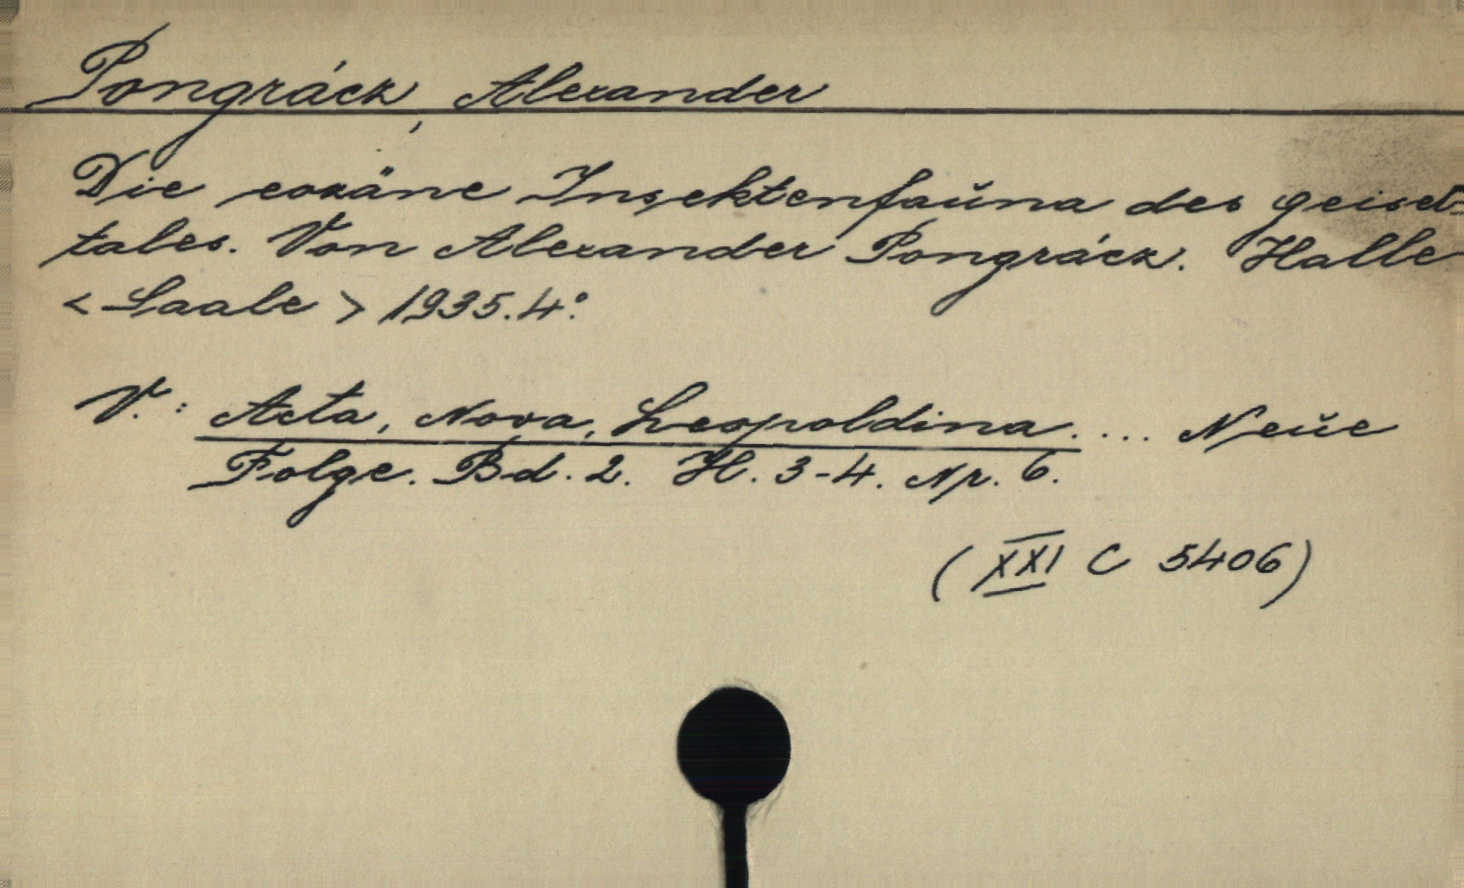 Pongrácz, Alexander
Die eozäne Insektenfaŭna des geisel-
tales. Von Alexander Pongrácz. Halle
<Saale> 1935. 4°.
V.: Acta, Nova, Leopoldina. ... Neŭe
Folge. Bd. 2. H. 3-4. Nr. 6.
(XXI C 5406)